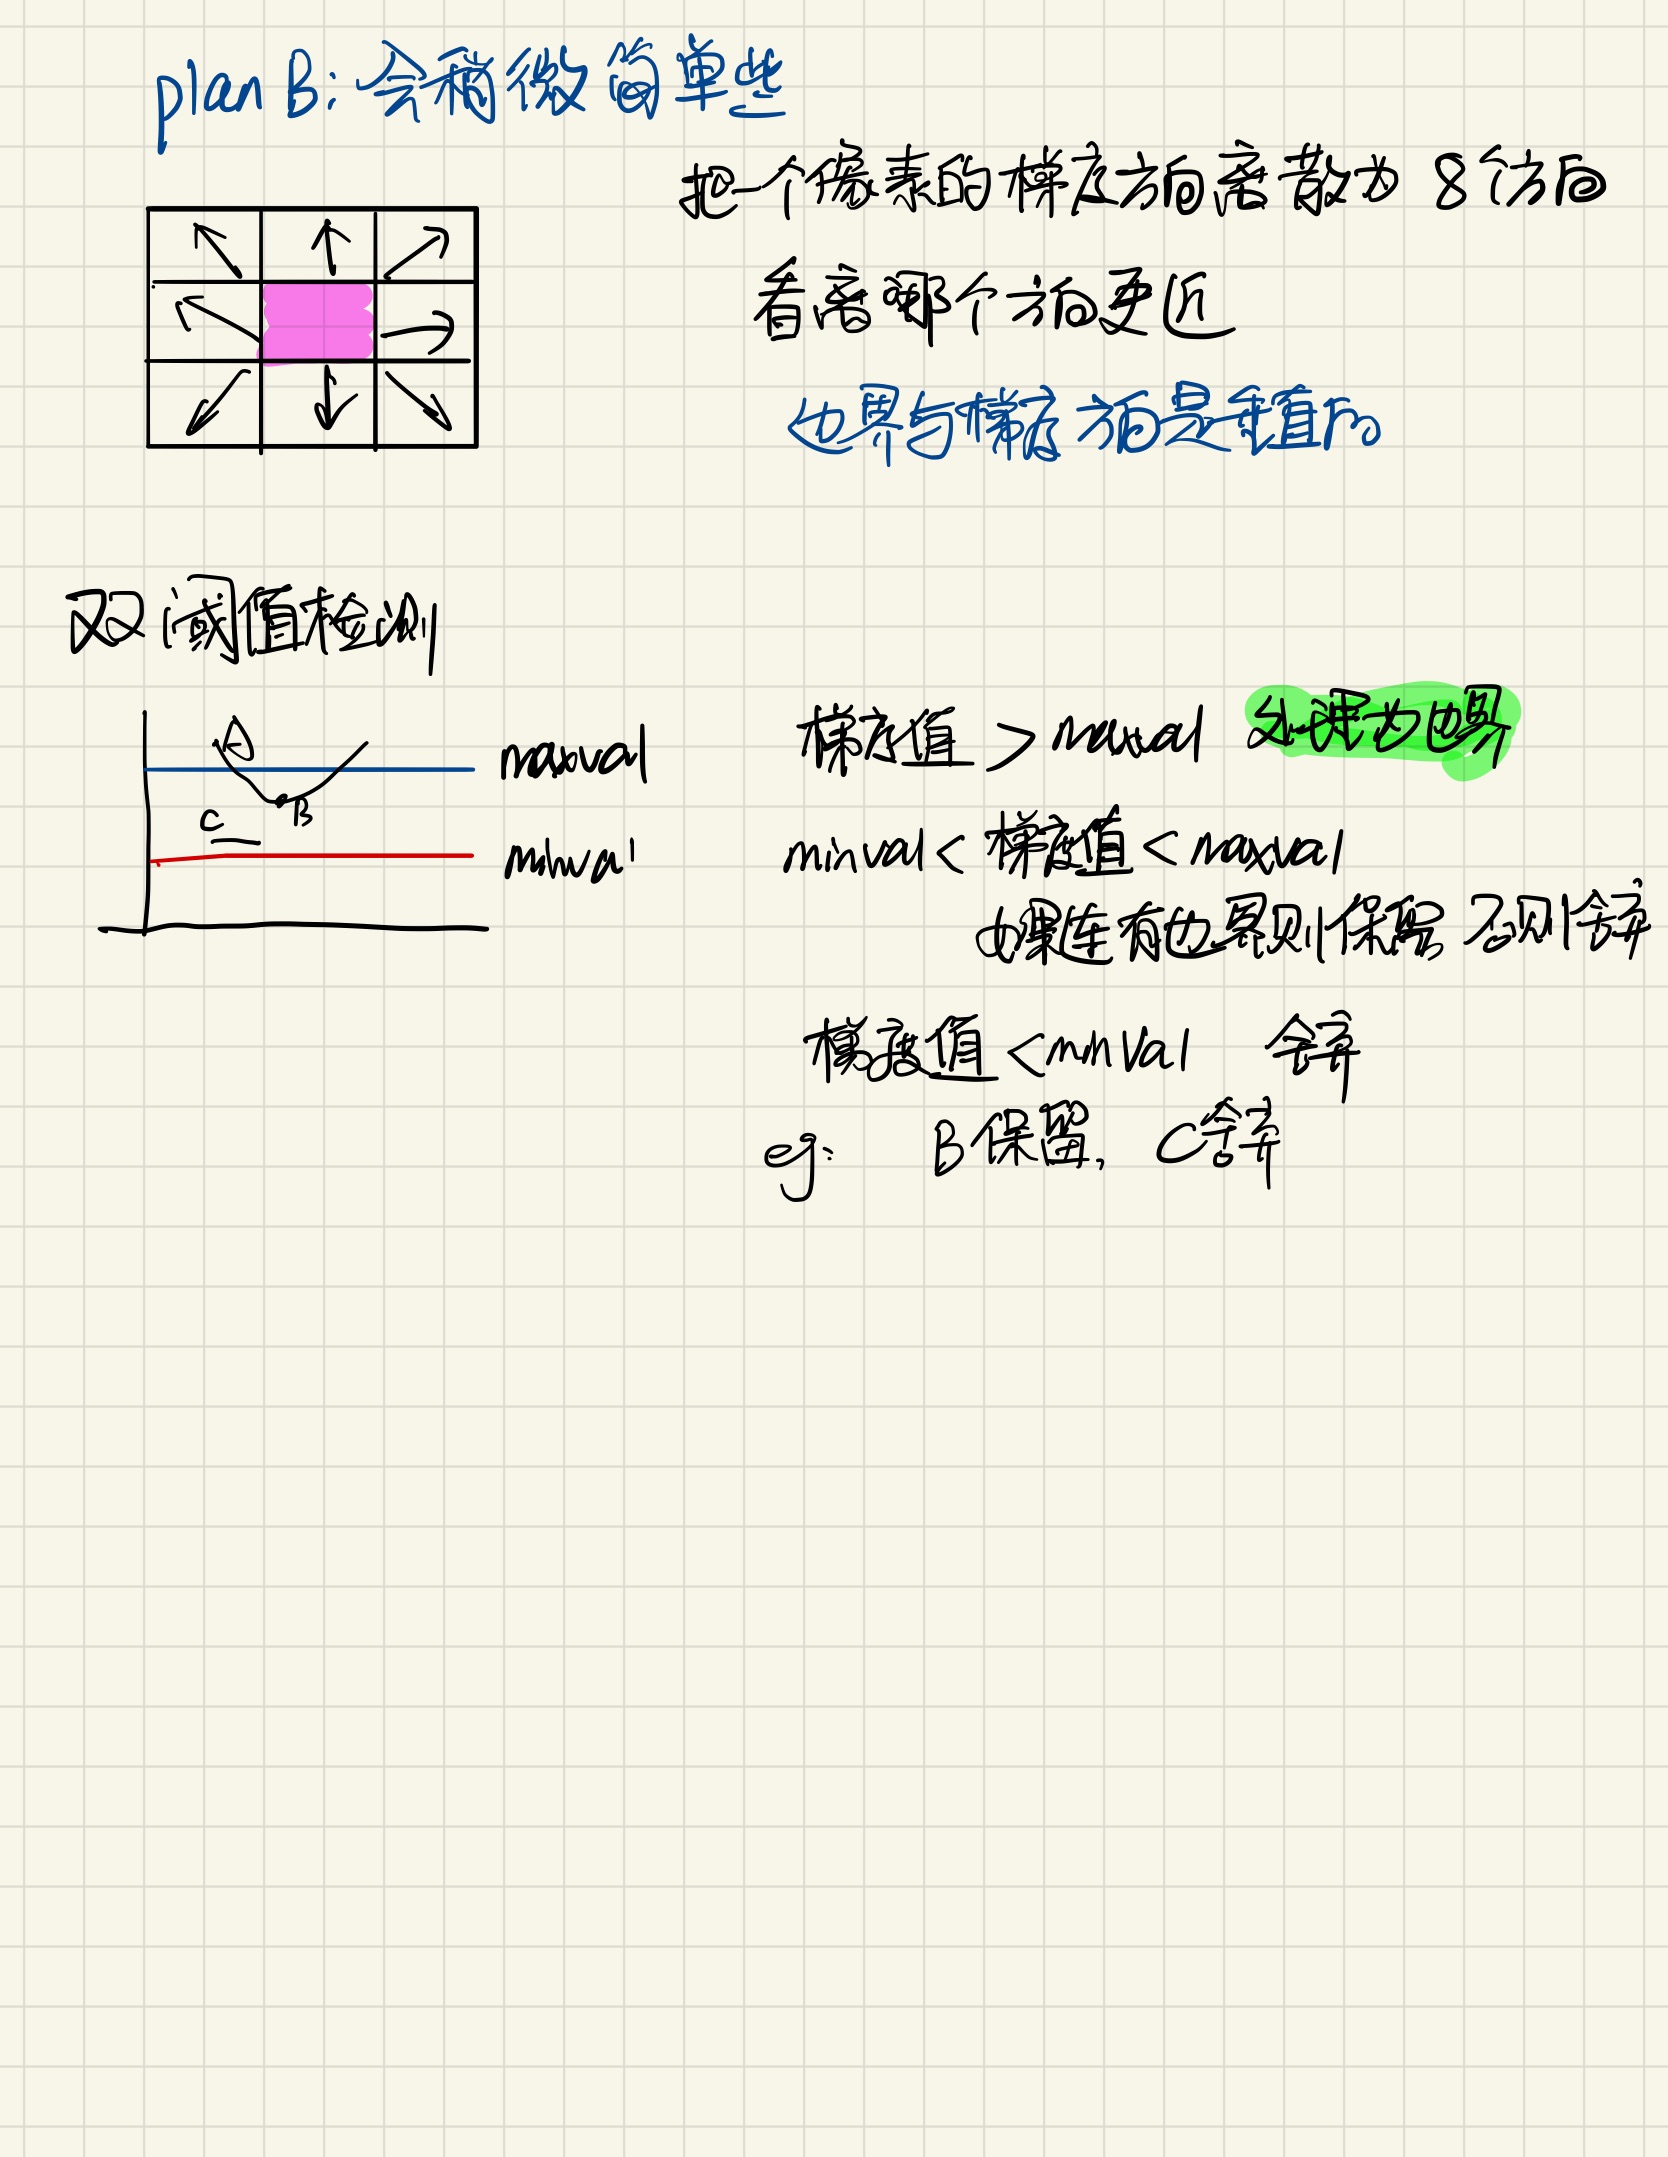 plan B: 会稍微简单些
把一个像素的梯度方向离散为 8个方向
看离哪个方向更近
边界与梯度方向是垂直的
双阈值检测
A
B
C
maxval
minval
梯度值 > maxval 处理为边界
minval < 梯度值 < maxval
如果连有边界则保留 否则舍弃
梯度值 < minval 舍弃
eg: B保留, C舍弃